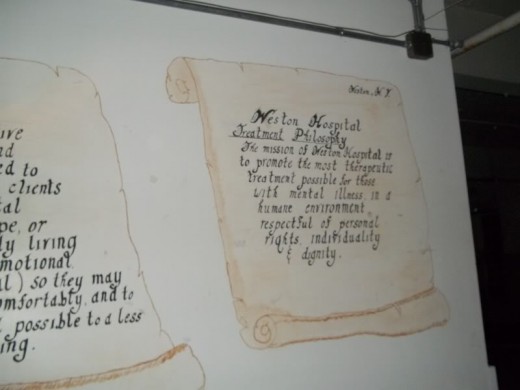 ive
nd
ed to
clients
tal
pe, or
ly living
motional
l) so they may
omfortably, and to
possible to a less
ing.
Weston Hospital
Treatment Philosophy
The mission of Weston Hospital is
to promote the most therapeutic
treatment possible for those
with mental illness, in a
humane environment,
respectful of personal
rights, individuality
& dignity.